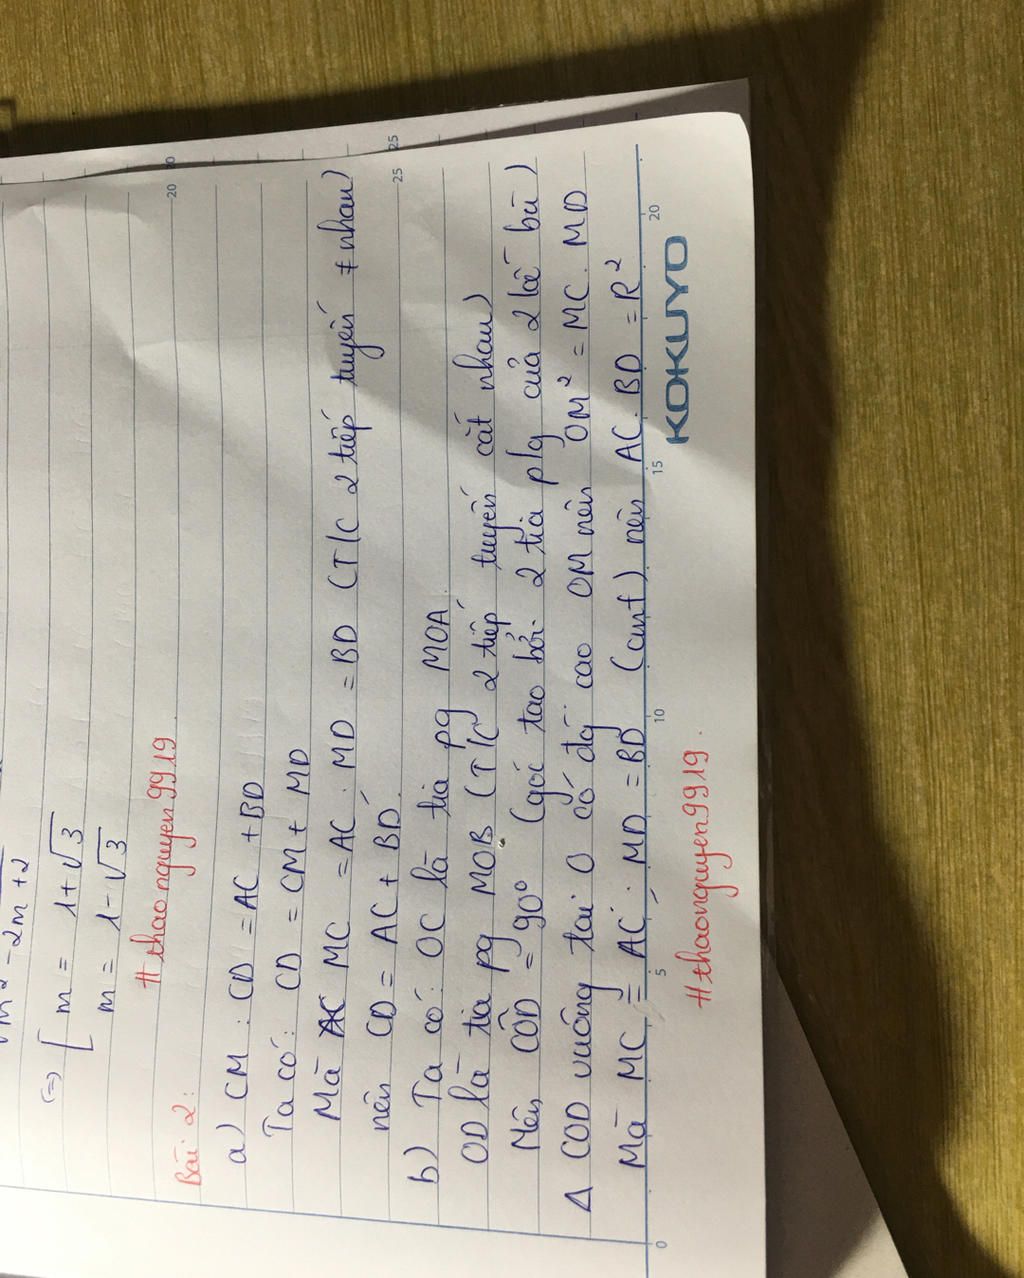 m² - 2m + 2
(=) [ m = 1+√3
m = 1-√3
# thaonguyen9919
20 20
Bài 2:
a) CM: CD = AC + BD
Ta có: CD = CM + MD
Mà MC = AC. MD = BD (T/c 2 tiếp tuyến ≠ nhau)
nên CD = AC + BD.
25 25
b) Ta có: OC là tia pg MOA.
OD là tia pg MOB (T/c 2 tiếp tuyến cắt nhau)
Nên CÔD = 90° (góc tạo bởi 2 tia p/g của 2 kề bù)
Δ COD vuông tại O có đg cao OM nên OM² = MC. MD
Mà MC = AC. MD = BD (cmt) nên AC. BD = R²
0 5 10 15 20
# thaonguyen9919. KOKUYO